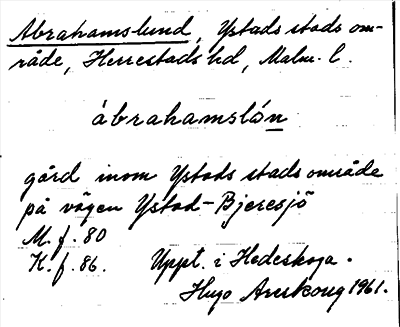 Abrahamslund, Ystads stads om-
råde, Herrestads hd, Malm. l.
ábrahamslón
gård inom Ystads stadsområde
på vägen Ystad-Bjeresjö
M. f. 80
K. f. 86. Uppt. i Hedeskoga.
Hugo Areskoug 1961.